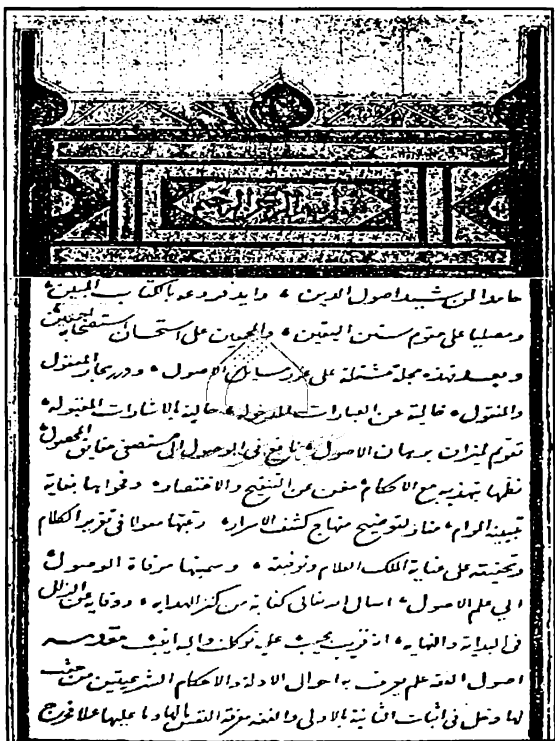 بسم الله الرحمن الرحيم
حامدا لمن شيد اصول الدين وايد فروعه بالكتاب المبين
ومصليا على مقوم سنن اليقين والمجمعين على استحسان استصحابه اجمعين
وبعد فهذه مجلة مشتملة على غرر مسائل الاصول ودرر بحار المعقول
والمنقول خالية عن العبارات المدخولة حالية بالاشارات المقبولة
تقويم لميزان برهان الاصول نافع في الوصول الى مستصفى حقايق المحصول
نظمها تهذيب مع الاحكام مغن عن التنقيح والاقتصار وفحواها بغاية
تبيينه المرام منار لتوضيح منهاج كشف الاسرار رتبتها معولا في تقرير الكلام
وتحقيقه على عناية الملك العلام وتوفيقه وسميتها مرقاة الوصول
الى علم الاصول اسال الله تعالى كفاية من كنز الهداية ووقاية عن الزلل
في البداية والنهاية انه قريب مجيب عليه توكلت واليه انيب مقدمه
اصول الفقه علم يعرف به احوال الادلة والاحكام الشرعيتين من حيث
لها دخل في اثبات الثانية بالاولى والفقه معرفة النفس مالها وما عليها عملا فخرج